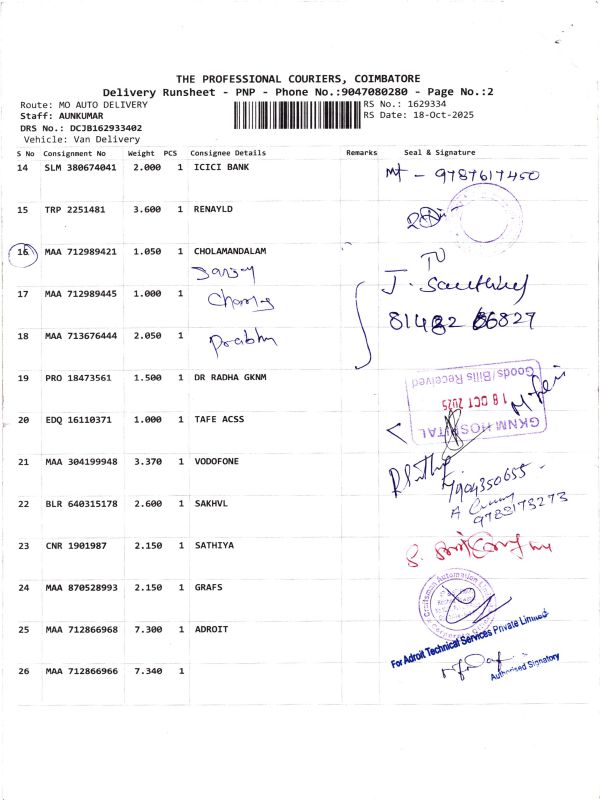 THE PROFESSIONAL COURIERS, COIMBATORE
Delivery Runsheet - PNP - Phone No.:9047080280 - Page No.:2
Route: MO AUTO DELIVERY
RS No.: 1629334
Staff: AUNKUMAR
RS Date: 18-Oct-2025
DRS No.: DCJB162933402
Vehicle: Van Delivery
S No Consignment No Weight PCS Consignee Details Remarks Seal & Signature
14 SLM 380674041 2.000 1 ICICI BANK
- 9787617450
15 TRP 2251481 3.600 1 RENAYLD
16 MAA 712989421 1.050 1 CHOLAMANDALAM
Sanjay
17 MAA 712989445 1.000 1
18 MAA 713676444 2.050 1
Prabhu
19 PRO 18473561 1.500 1 DR RADHA GKNM
GKNM HOSPITAL
18 OCT 2025
Goods/Bills Received
20 EDQ 16110371 1.000 1 TAFE ACSS
21 MAA 304199948 3.370 1 VODOFONE
7904350655
22 BLR 640315178 2.600 1 SAKHVL
9789173273
23 CNR 1901987 2.150 1 SATHIYA
24 MAA 870528993 2.150 1 GRAFS
Craftsman Automation Limited
25 MAA 712866968 7.300 1 ADROIT
For Adroit Technical Services Private Limited
26 MAA 712866966 7.340 1
Authorised Signatory